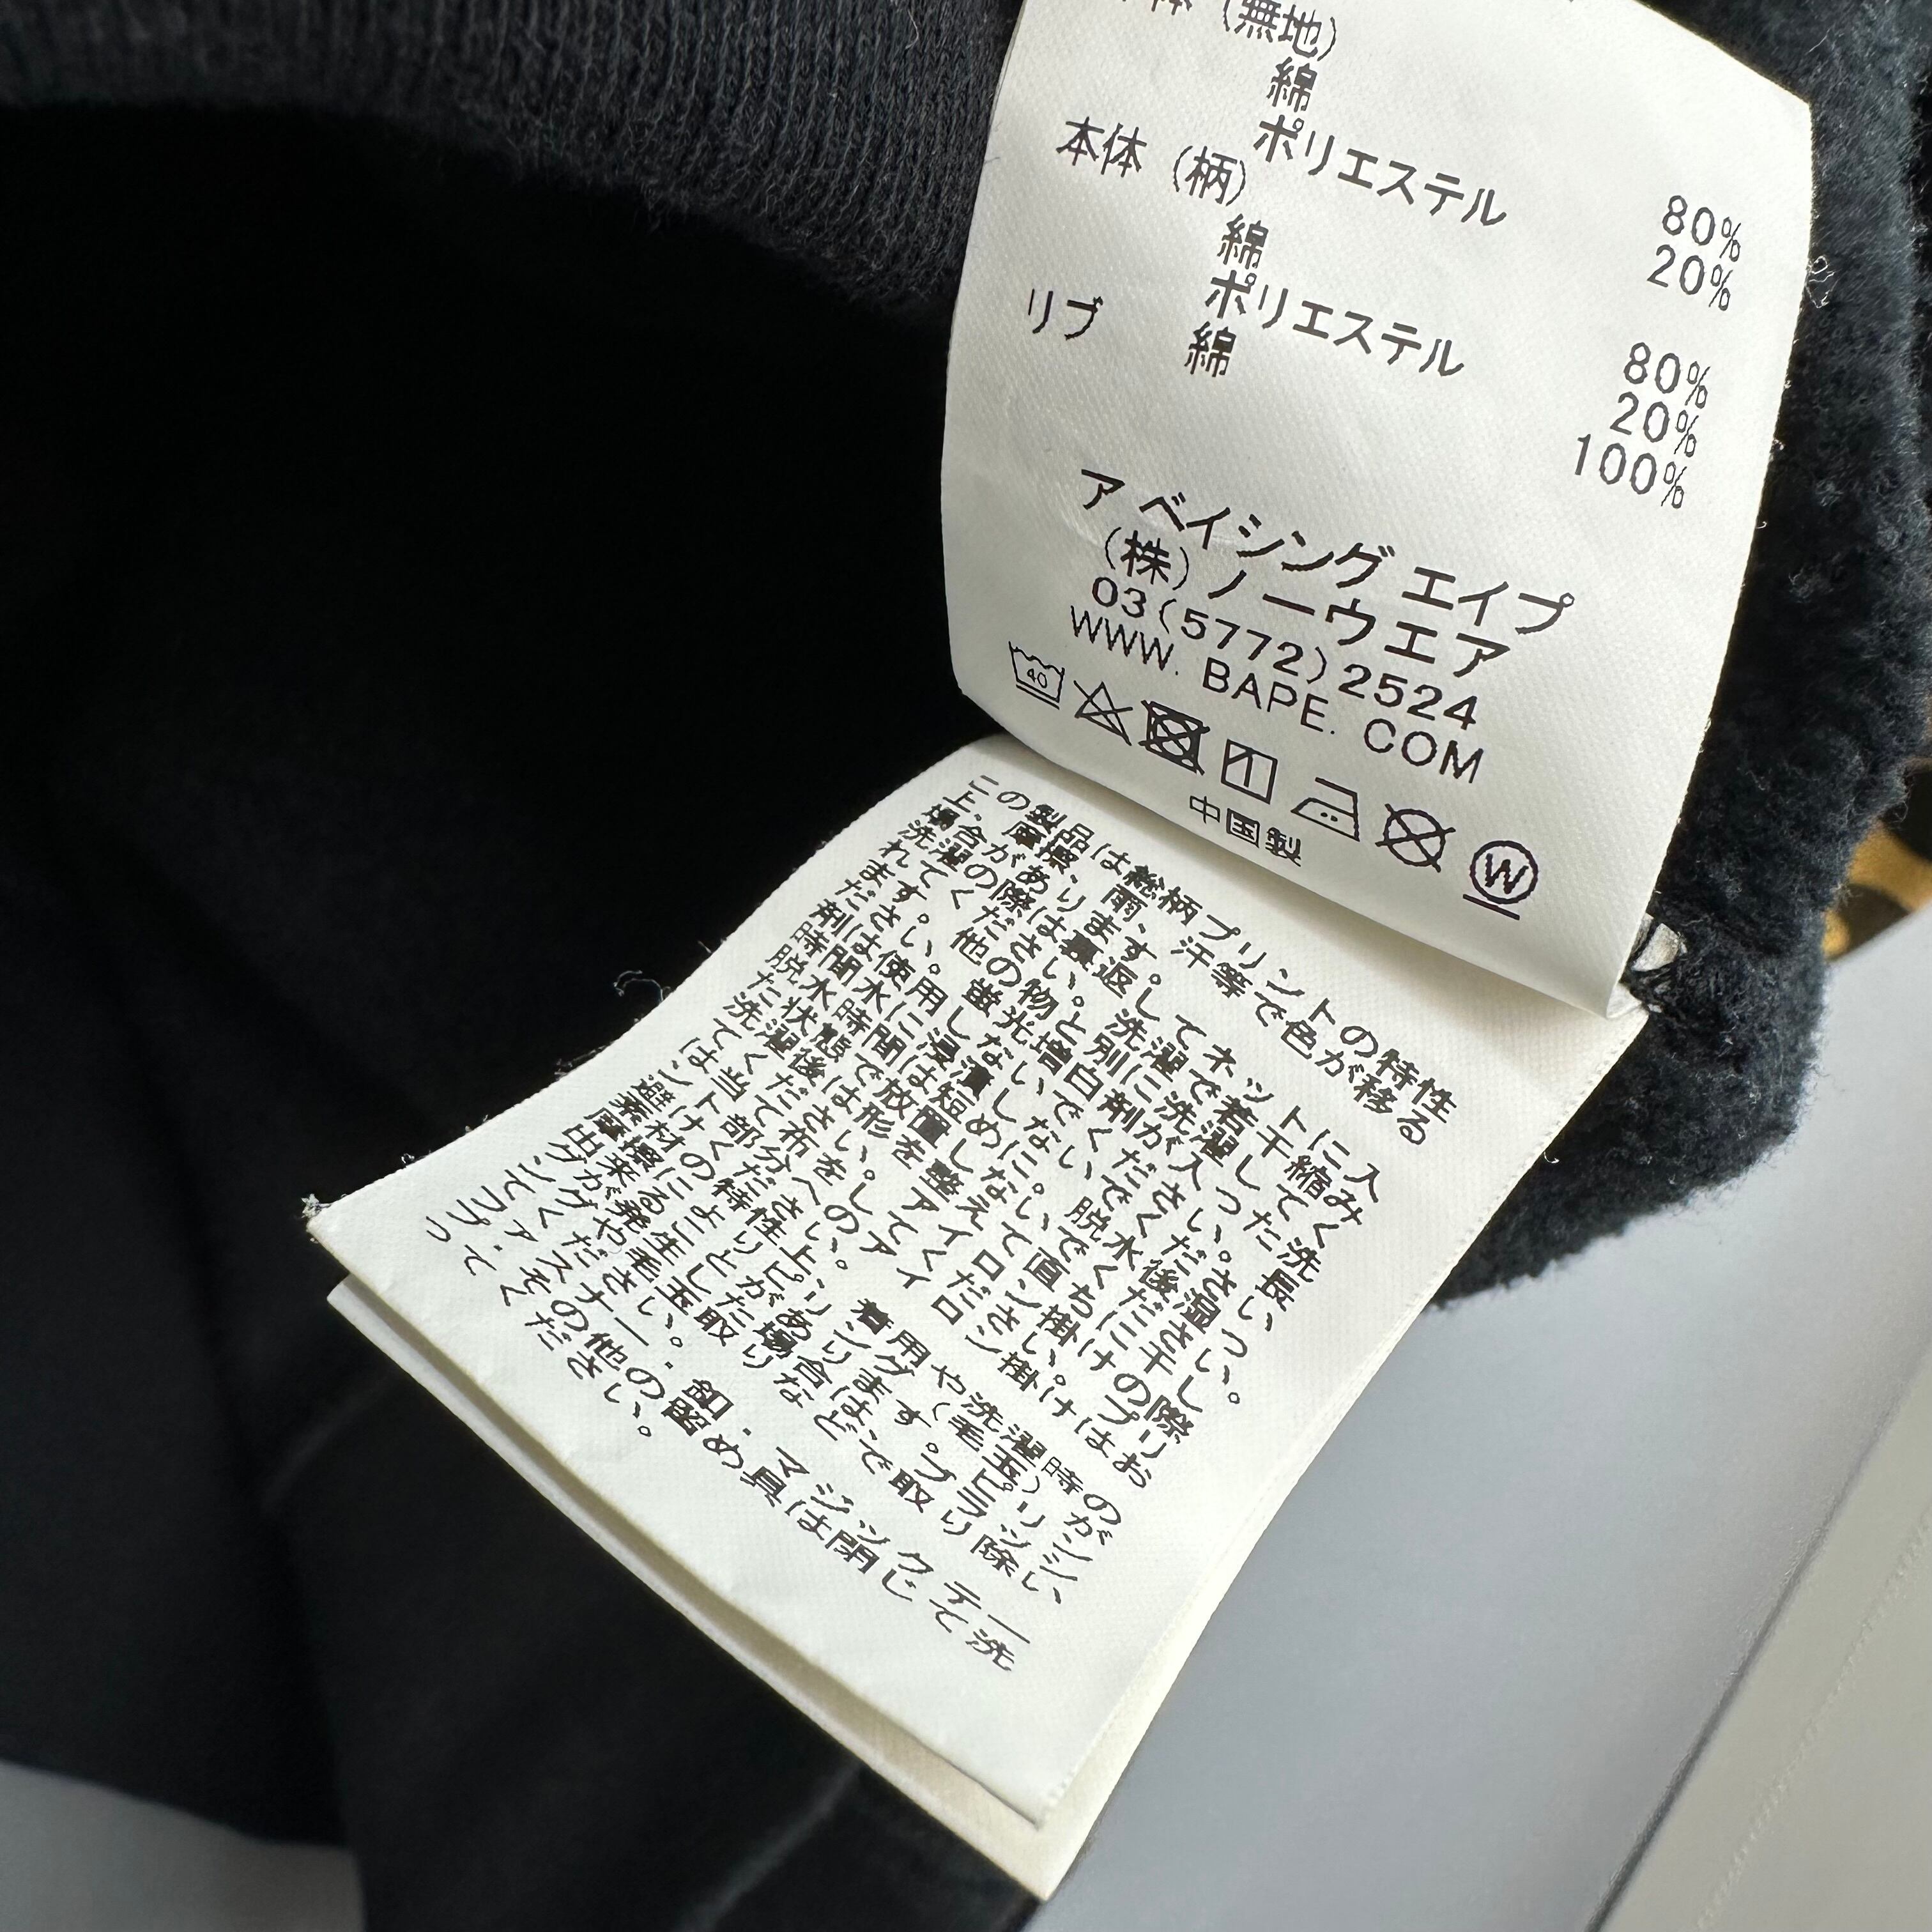 本体（無地）
綿 80%
ポリエステル 20%
本体（柄）
綿 80%
ポリエステル 20%
リブ 綿 100%
ア ベイシング エイプ
(株)ノーウエア
03(5772)2524
WWW. BAPE. COM
40
W
中国製
この製品は総柄プリントの特性
上、摩擦、雨、汗等で色が移る
場合があります。洗濯で若干縮み
洗濯の際は裏返してネットに入
れてください。洗濯して
ます。他の物と別に洗濯してく
ださい。蛍光増白剤が入った洗
剤は使用しないでください。長
時間水に浸漬しないでください
脱水時間は短めに。脱水後湿っ
た状態で放置しないでください。
洗濯後は形を整えて直ちに干し
てください。アイロン掛けの際
は当て布をしてください。プリ
ント部分へのアイロン掛けはお
避けください。
素材の特性上、着用や洗濯時の
摩擦によりピリング(毛玉)が
出来ることがあります。ピリン
グが発生した場合は、ブラッシ
ングや毛玉取りなどで取り除い
てください。
ファスナー・釦・マジックテー
プ・その他の留め具は閉じて洗
ってください。